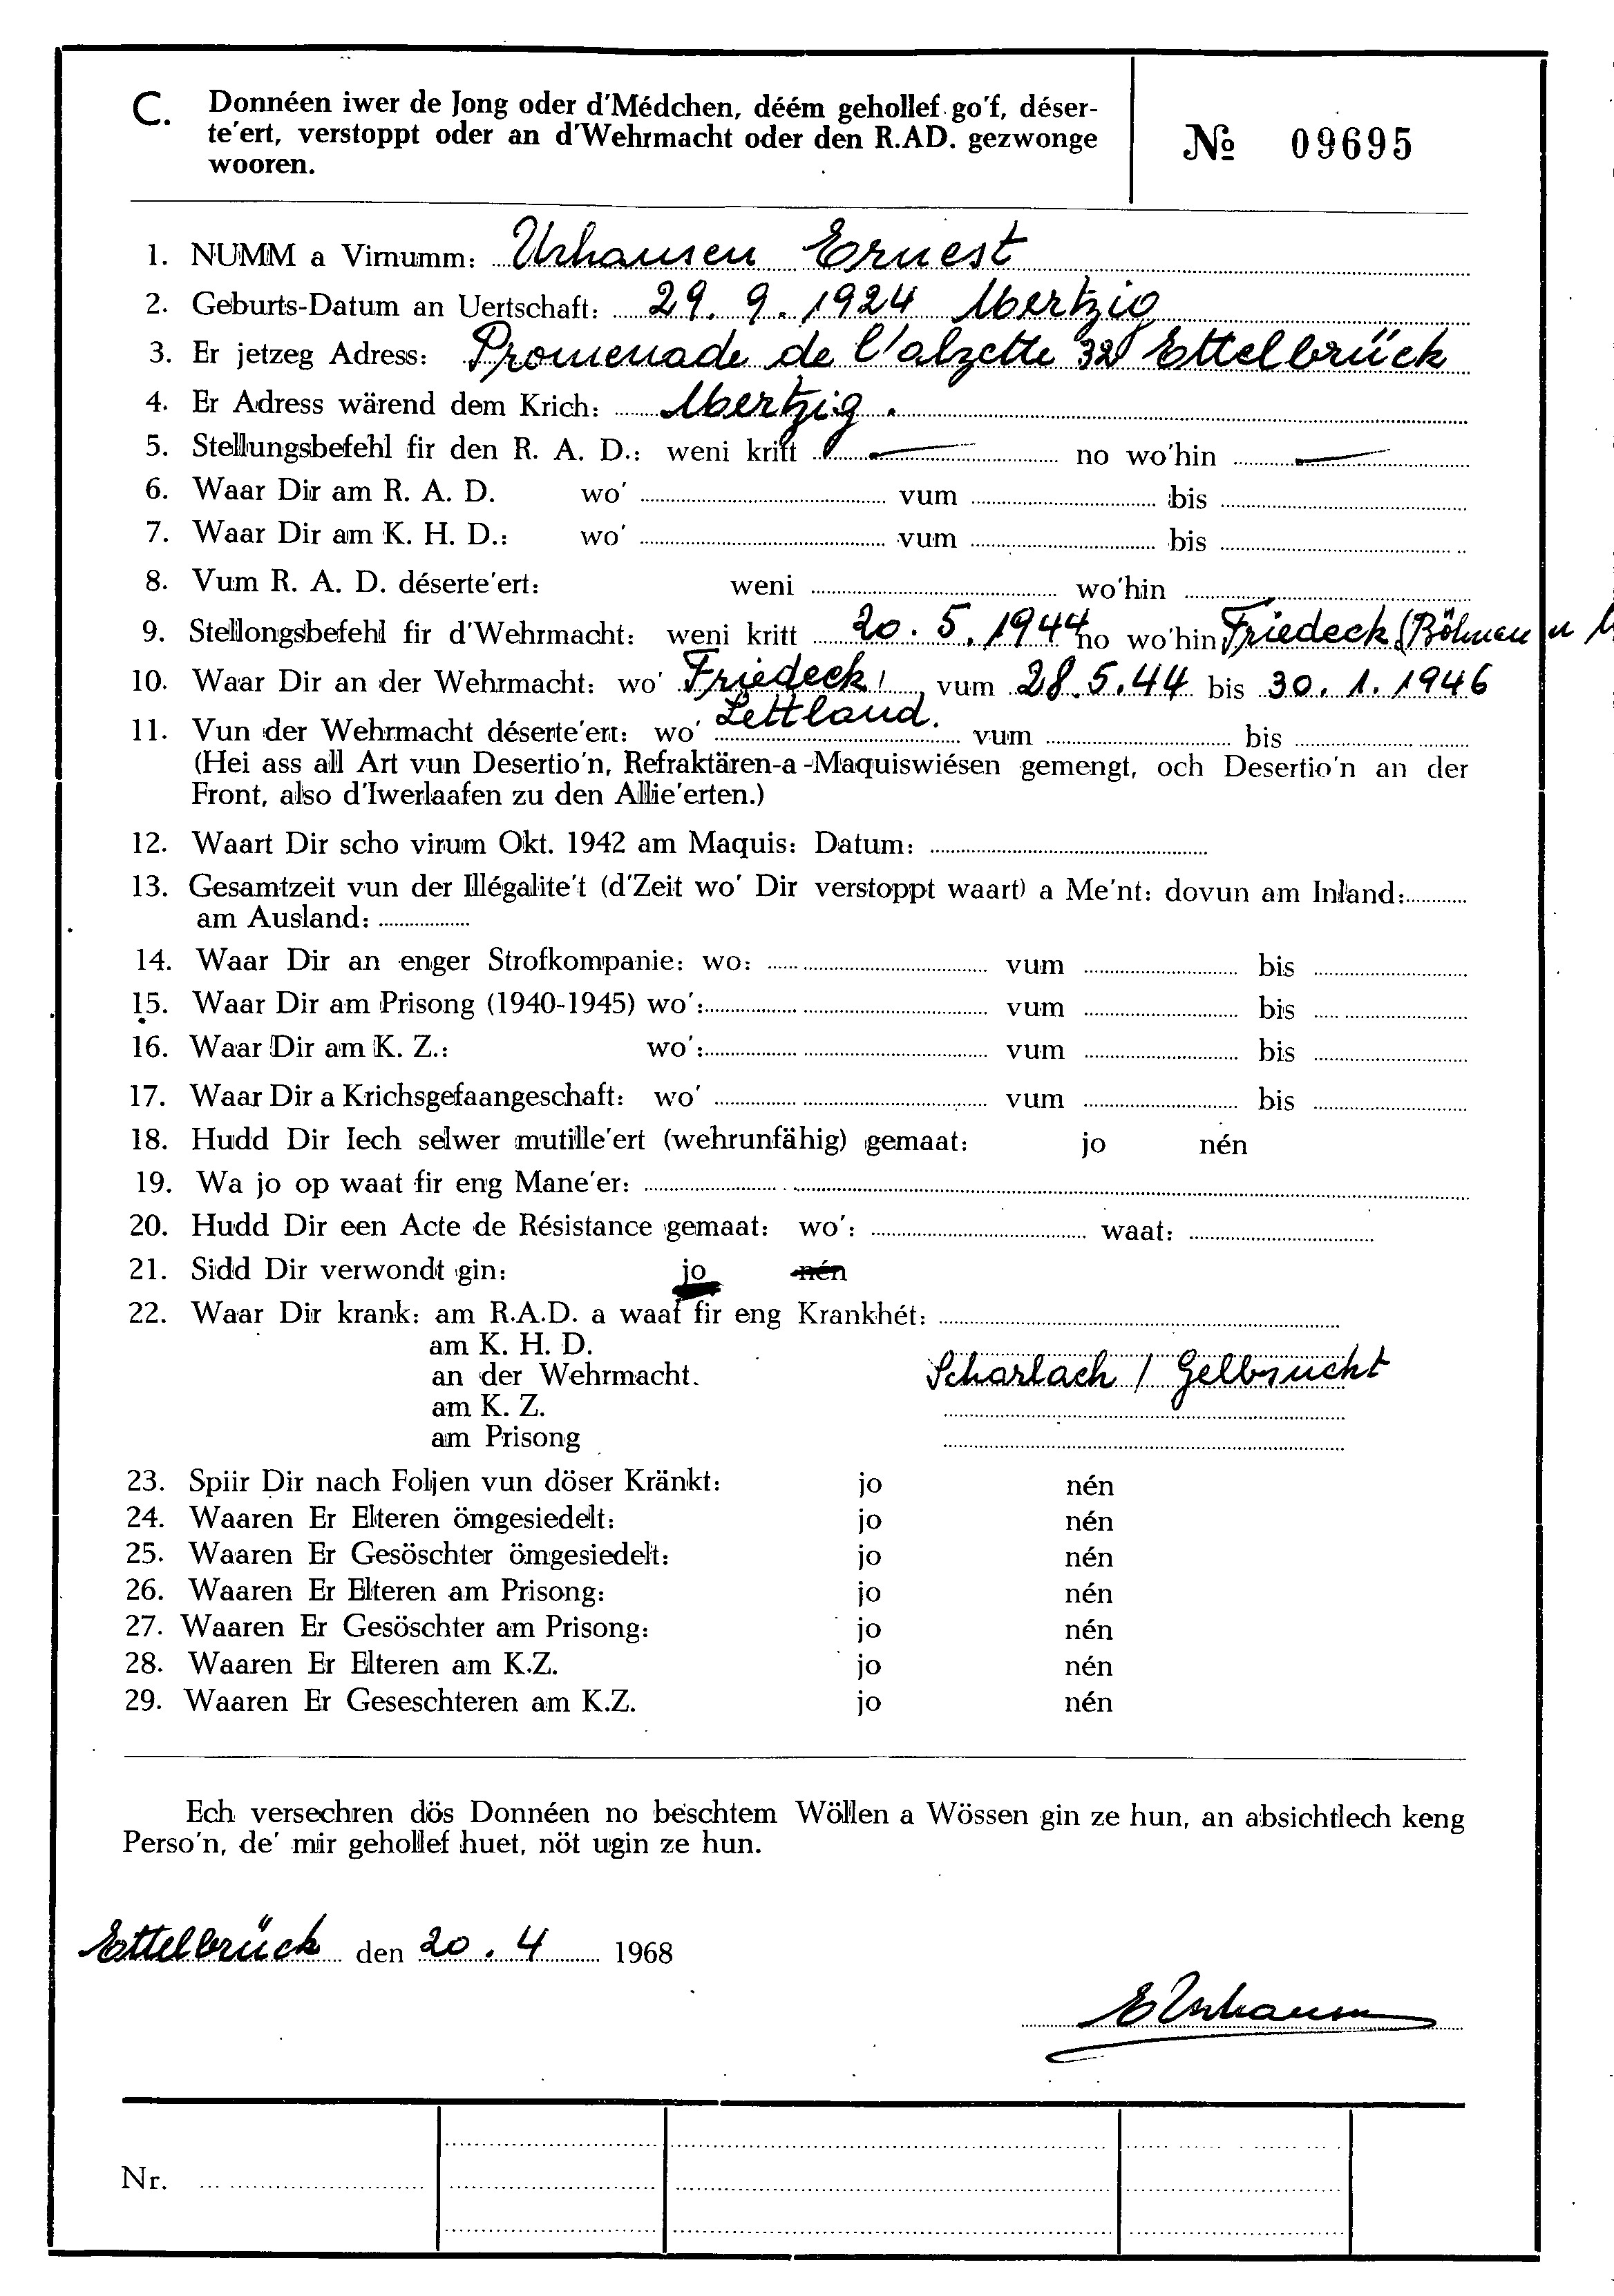 C. Donnéen iwer de Jong oder d'Médchen, déém gehollef go'f, déser-
te'ert, verstoppt oder an d'Wehrmacht oder den R.AD. gezwonge
wooren.
№ 09695
1. NUMM a Virnumm: Urhausen Ernest
2. Geburts-Datum an Uertschaft: 29. 9. 1924 Mertzig
3. Er jetzeg Adress: Promenade de l'alzette 32 Ettelbrück
4. Er Adress wärend dem Krich: Mertzig.
5. Stellungsbefehl fir den R. A. D.: weni kritt — no wo'hin —
6. Waar Dir am R. A. D. wo' vum bis
7. Waar Dir am K. H. D.: wo' vum bis
8. Vum R. A. D. déserte'ert: weni wo'hin
9. Stellongsbefehl fir d'Wehrmacht: weni kritt 20. 5. 1944 no wo'hin Friedeck (Böhmen u
10. Waar Dir an der Wehrmacht: wo' Friedeck / vum 28.5.44 bis 30. 1. 1946
Lettland.
11. Vun der Wehrmacht déserte'ert: wo' vum bis
(Hei ass all Art vun Desertio'n, Refraktären-a-Maquiswiésen gemengt, och Desertio'n an der
Front, also d'Iwerlaafen zu den Allie'erten.)
12. Waart Dir scho virum Okt. 1942 am Maquis: Datum:
13. Gesamtzeit vun der Illégalite't (d'Zeit wo' Dir verstoppt waart) a Me'nt: dovun am Inland:
am Ausland:
14. Waar Dir an enger Strofkompanie: wo: vum bis
15. Waar Dir am Prisong (1940-1945) wo': vum bis
16. Waar Dir am K. Z.: wo': vum bis
17. Waar Dir a Krichsgefaangeschaft: wo' vum bis
18. Hudd Dir Iech selwer mutille'ert (wehrunfähig) gemaat: jo nén
19. Wa jo op waat fir eng Mane'er:
20. Hudd Dir een Acte de Résistance gemaat: wo': waat:
21. Sidd Dir verwondt gin: jo nén
22. Waar Dir krank: am R.A.D. a waat fir eng Krankhét:
am K. H. D.
an der Wehrmacht. Scharlach / Gelbsucht
am K. Z.
am Prisong
23. Spiir Dir nach Foljen vun döser Kränkt: jo nén
24. Waaren Er Elteren ömgesiedelt: jo nén
25. Waaren Er Gesöschter ömgesiedelt: jo nén
26. Waaren Er Elteren am Prisong: jo nén
27. Waaren Er Gesöschter am Prisong: jo nén
28. Waaren Er Elteren am K.Z. jo nén
29. Waaren Er Geseschteren am K.Z. jo nén
Ech versechren dös Donnéen no beschtem Wöllen a Wössen gin ze hun, an absichtlech keng
Perso'n, de' mir gehollef huet, nöt ugin ze hun.
Ettelbrück den 20. 4 1968
E Urhausen
Nr.